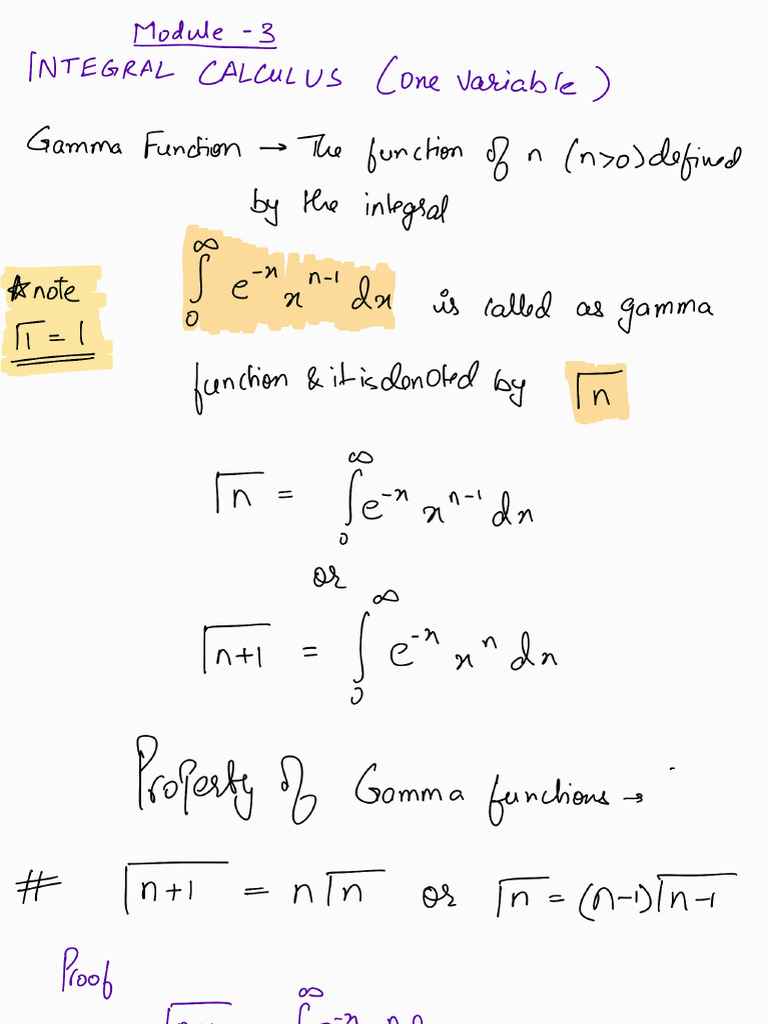 Module - 3
INTEGRAL CALCULUS (one variable)
Gamma Function → The function of n (n>0) defined
by the integral
☆ note
Γ1 = 1
∫₀^∞ e^-x x^n-1 dx is called as gamma
function & it is denoted by Γn
Γn = ∫₀^∞ e^-x x^n-1 dx
or
Γn+1 = ∫₀^∞ e^-x x^n dx
Property of Gamma functions →
# Γn+1 = nΓn or Γn = (n-1)Γn-1
Proof